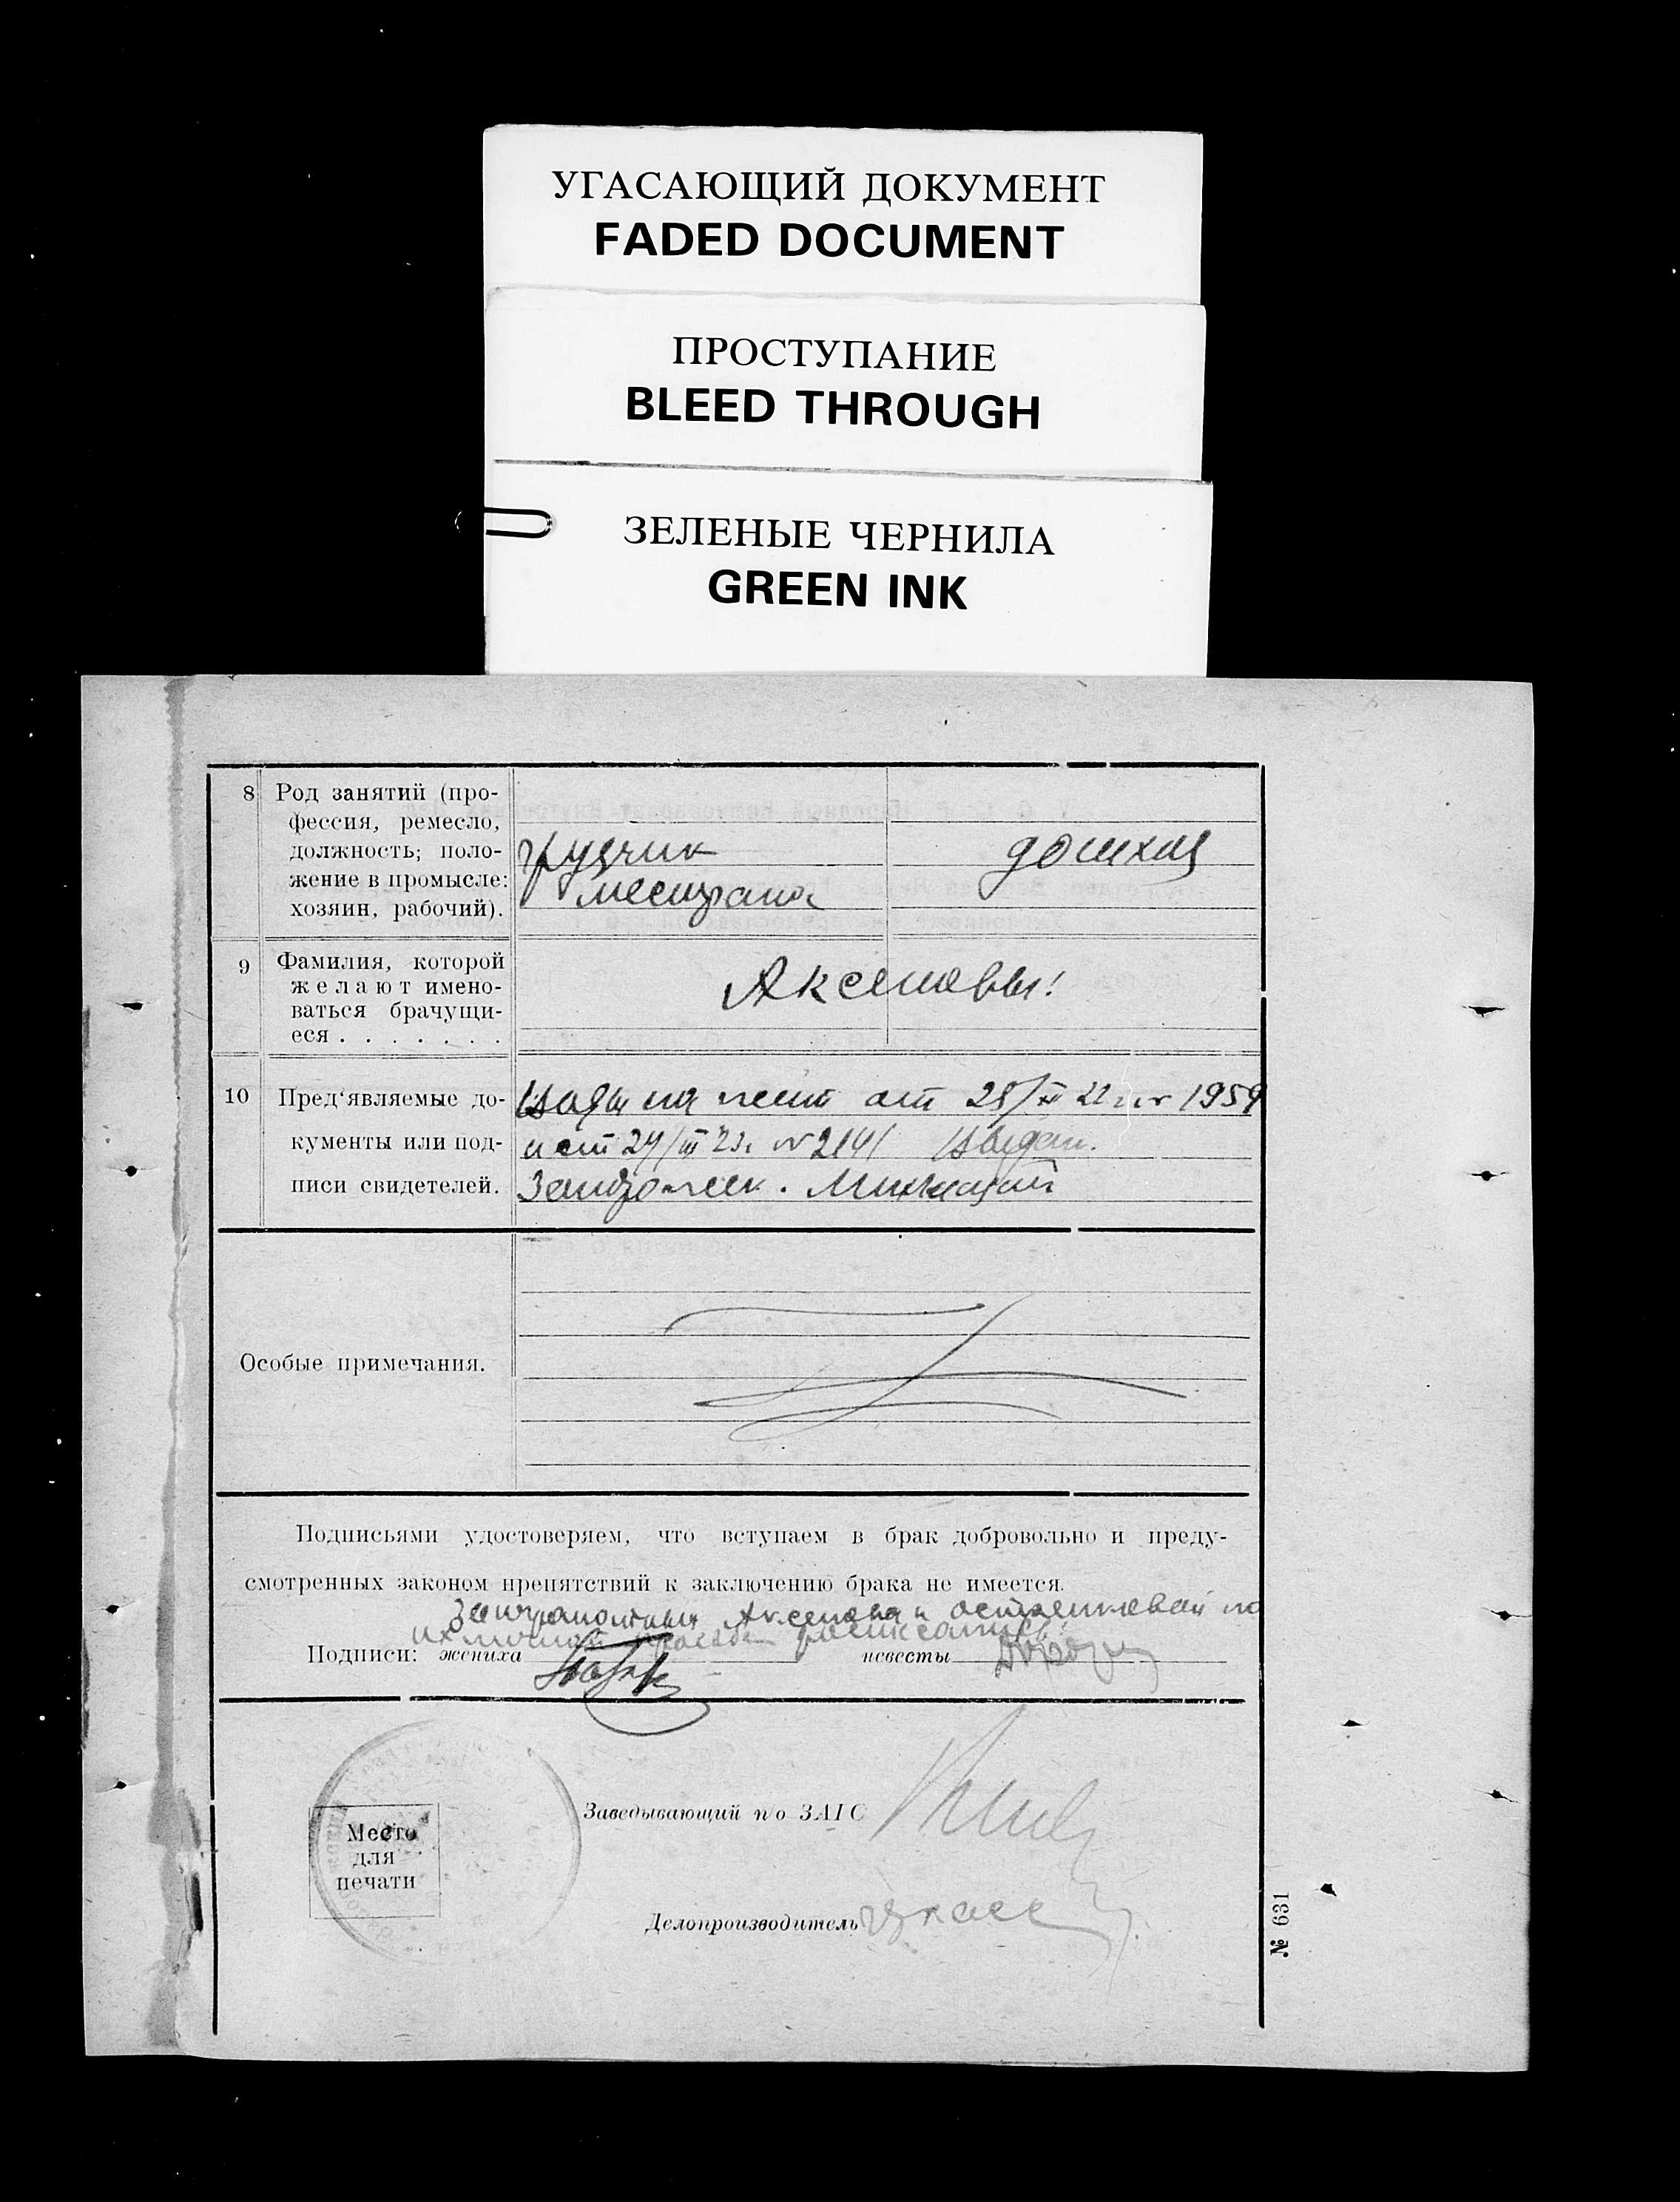 УГАСАЮЩИЙ ДОКУМЕНТ
FADED DOCUMENT
ПРОСТУПАНИЕ
BLEED THROUGH
ЗЕЛЕНЫЕ ЧЕРНИЛА
GREEN INK
8 Род занятий (про-
фессия, ремесло,
должность; поло-
жение в промысле:
хозяин, рабочий).
грузчик
домхоз
9 Фамилия, которой
желают имено-
ваться брачущи-
еся . . . . . . .
Аксеновы!
10 Пред'являемые до-
кументы или под-
писи свидетелей.
от 28/XI 22 г. № 1959
и от 24/III 23 г. № 2141 Выдан.
Милицией
Особые примечания.
Подписьями удостоверяем, что вступаем в брак добровольно и преду-
смотренных законом препятствий к заключению брака не имеется.
За неграмотных Аксенова и по
их личной просьбе расписались:
Подписи: жениха невесты
Место
для
печати
Заведывающий п/о ЗАГС
Делопроизводитель
№ 631